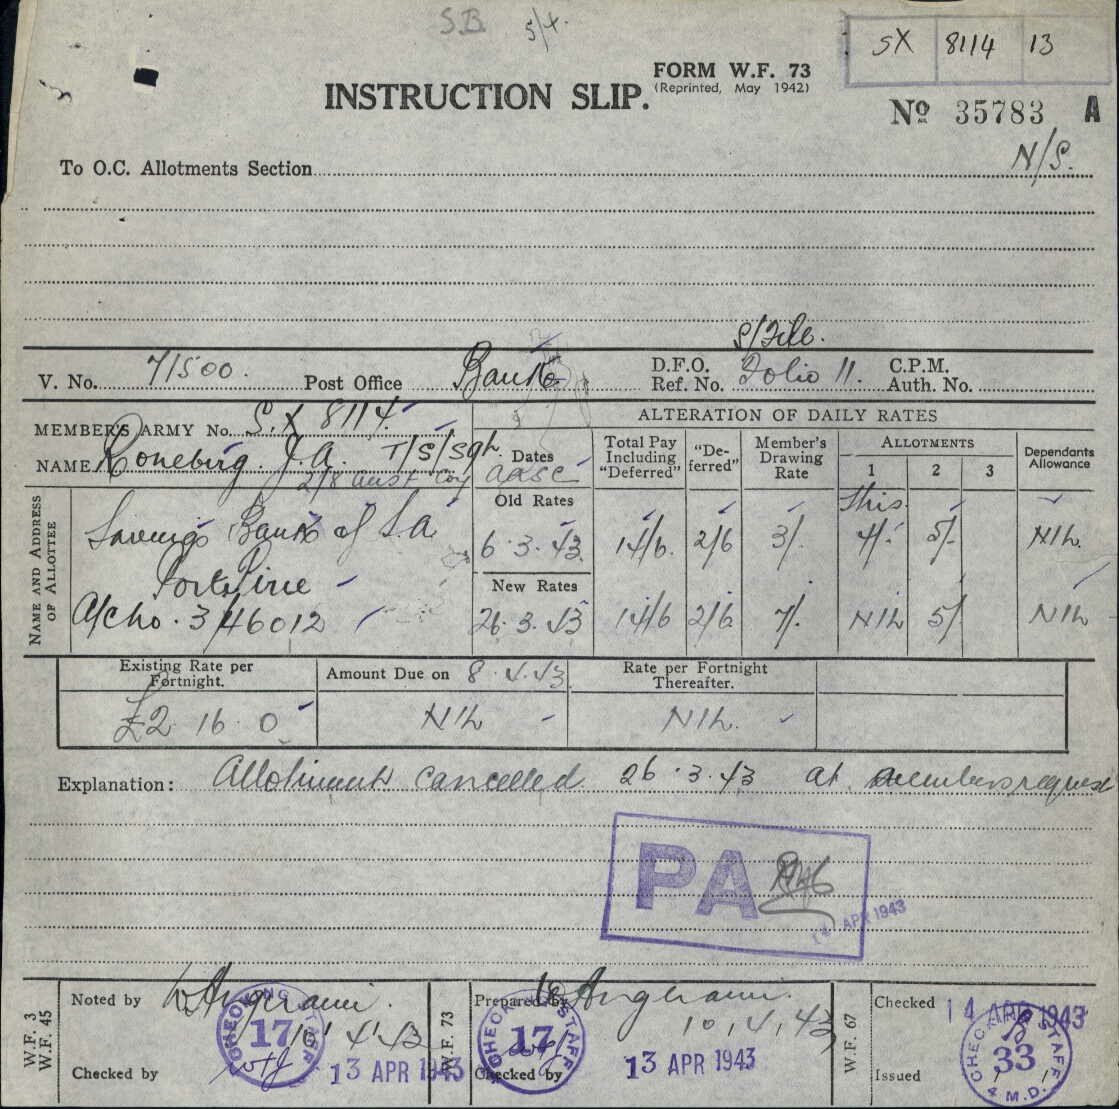 S.B. 5/4.
SX 8114 13
INSTRUCTION SLIP. FORM W.F. 73
(Reprinted, May 1942)
No 35783 A
N/S.
To O.C. Allotments Section
S/File.
V. No. 71500. Post Office Bank D.F.O. Ref. No. Folio 11. C.P.M. Auth. No.
MEMBER'S ARMY No. S.X 8114. ALTERATION OF DAILY RATES
NAME Roneburg. J.A. T/S/Sgt.
2/8 Aust Coy AASC
Dates Total Pay Including "Deferred" "Deferred" Member's Drawing Rate ALLOTMENTS 1 2 3 Dependants Allowance
NAME AND ADDRESS OF ALLOTTEE
Savings Bank of S.A
Port Pirie
A/C No. 3/46012
This.
Old Rates
6.3.43 14/6. 2/6 3/. 4/- 5/- Nil.
New Rates
26.3.43 14/6 2/6 7/. Nil 5/ Nil
Existing Rate per Fortnight. Amount Due on 8.4.43 Rate per Fortnight Thereafter.
£2 16 0 Nil - Nil. -
Explanation: Allotment cancelled 26.3.43 at members request
PA
14 APR 1943
W.F. 3
W.F. 45
Noted by
10.4.43
CHECKING STAFF 17
Checked by
13 APR 1943
W.F. 73
Prepared by
10.4.43
CHECKING STAFF 17
Checked by
13 APR 1943
W.F. 67
Checked 14 APR 1943
CHECKING STAFF 33 4 M.D.
Issued